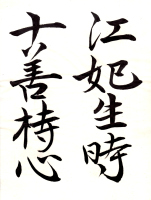 江妃生時
十善持心